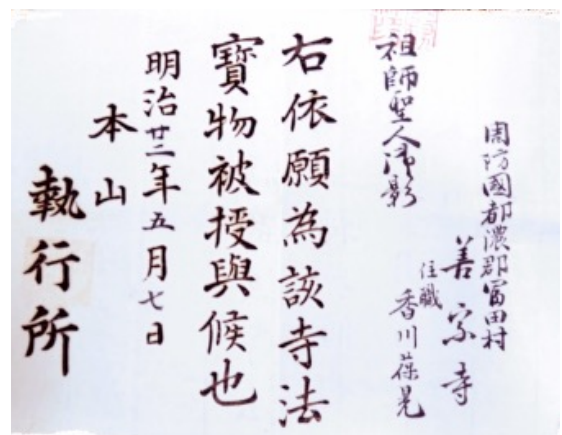 周防國都濃郡富田村
善宗寺
住職
香川葆晃
祖師聖人御影
右依願為該寺法
寶物被授與候也
明治廿二年五月七日
本山
執行所